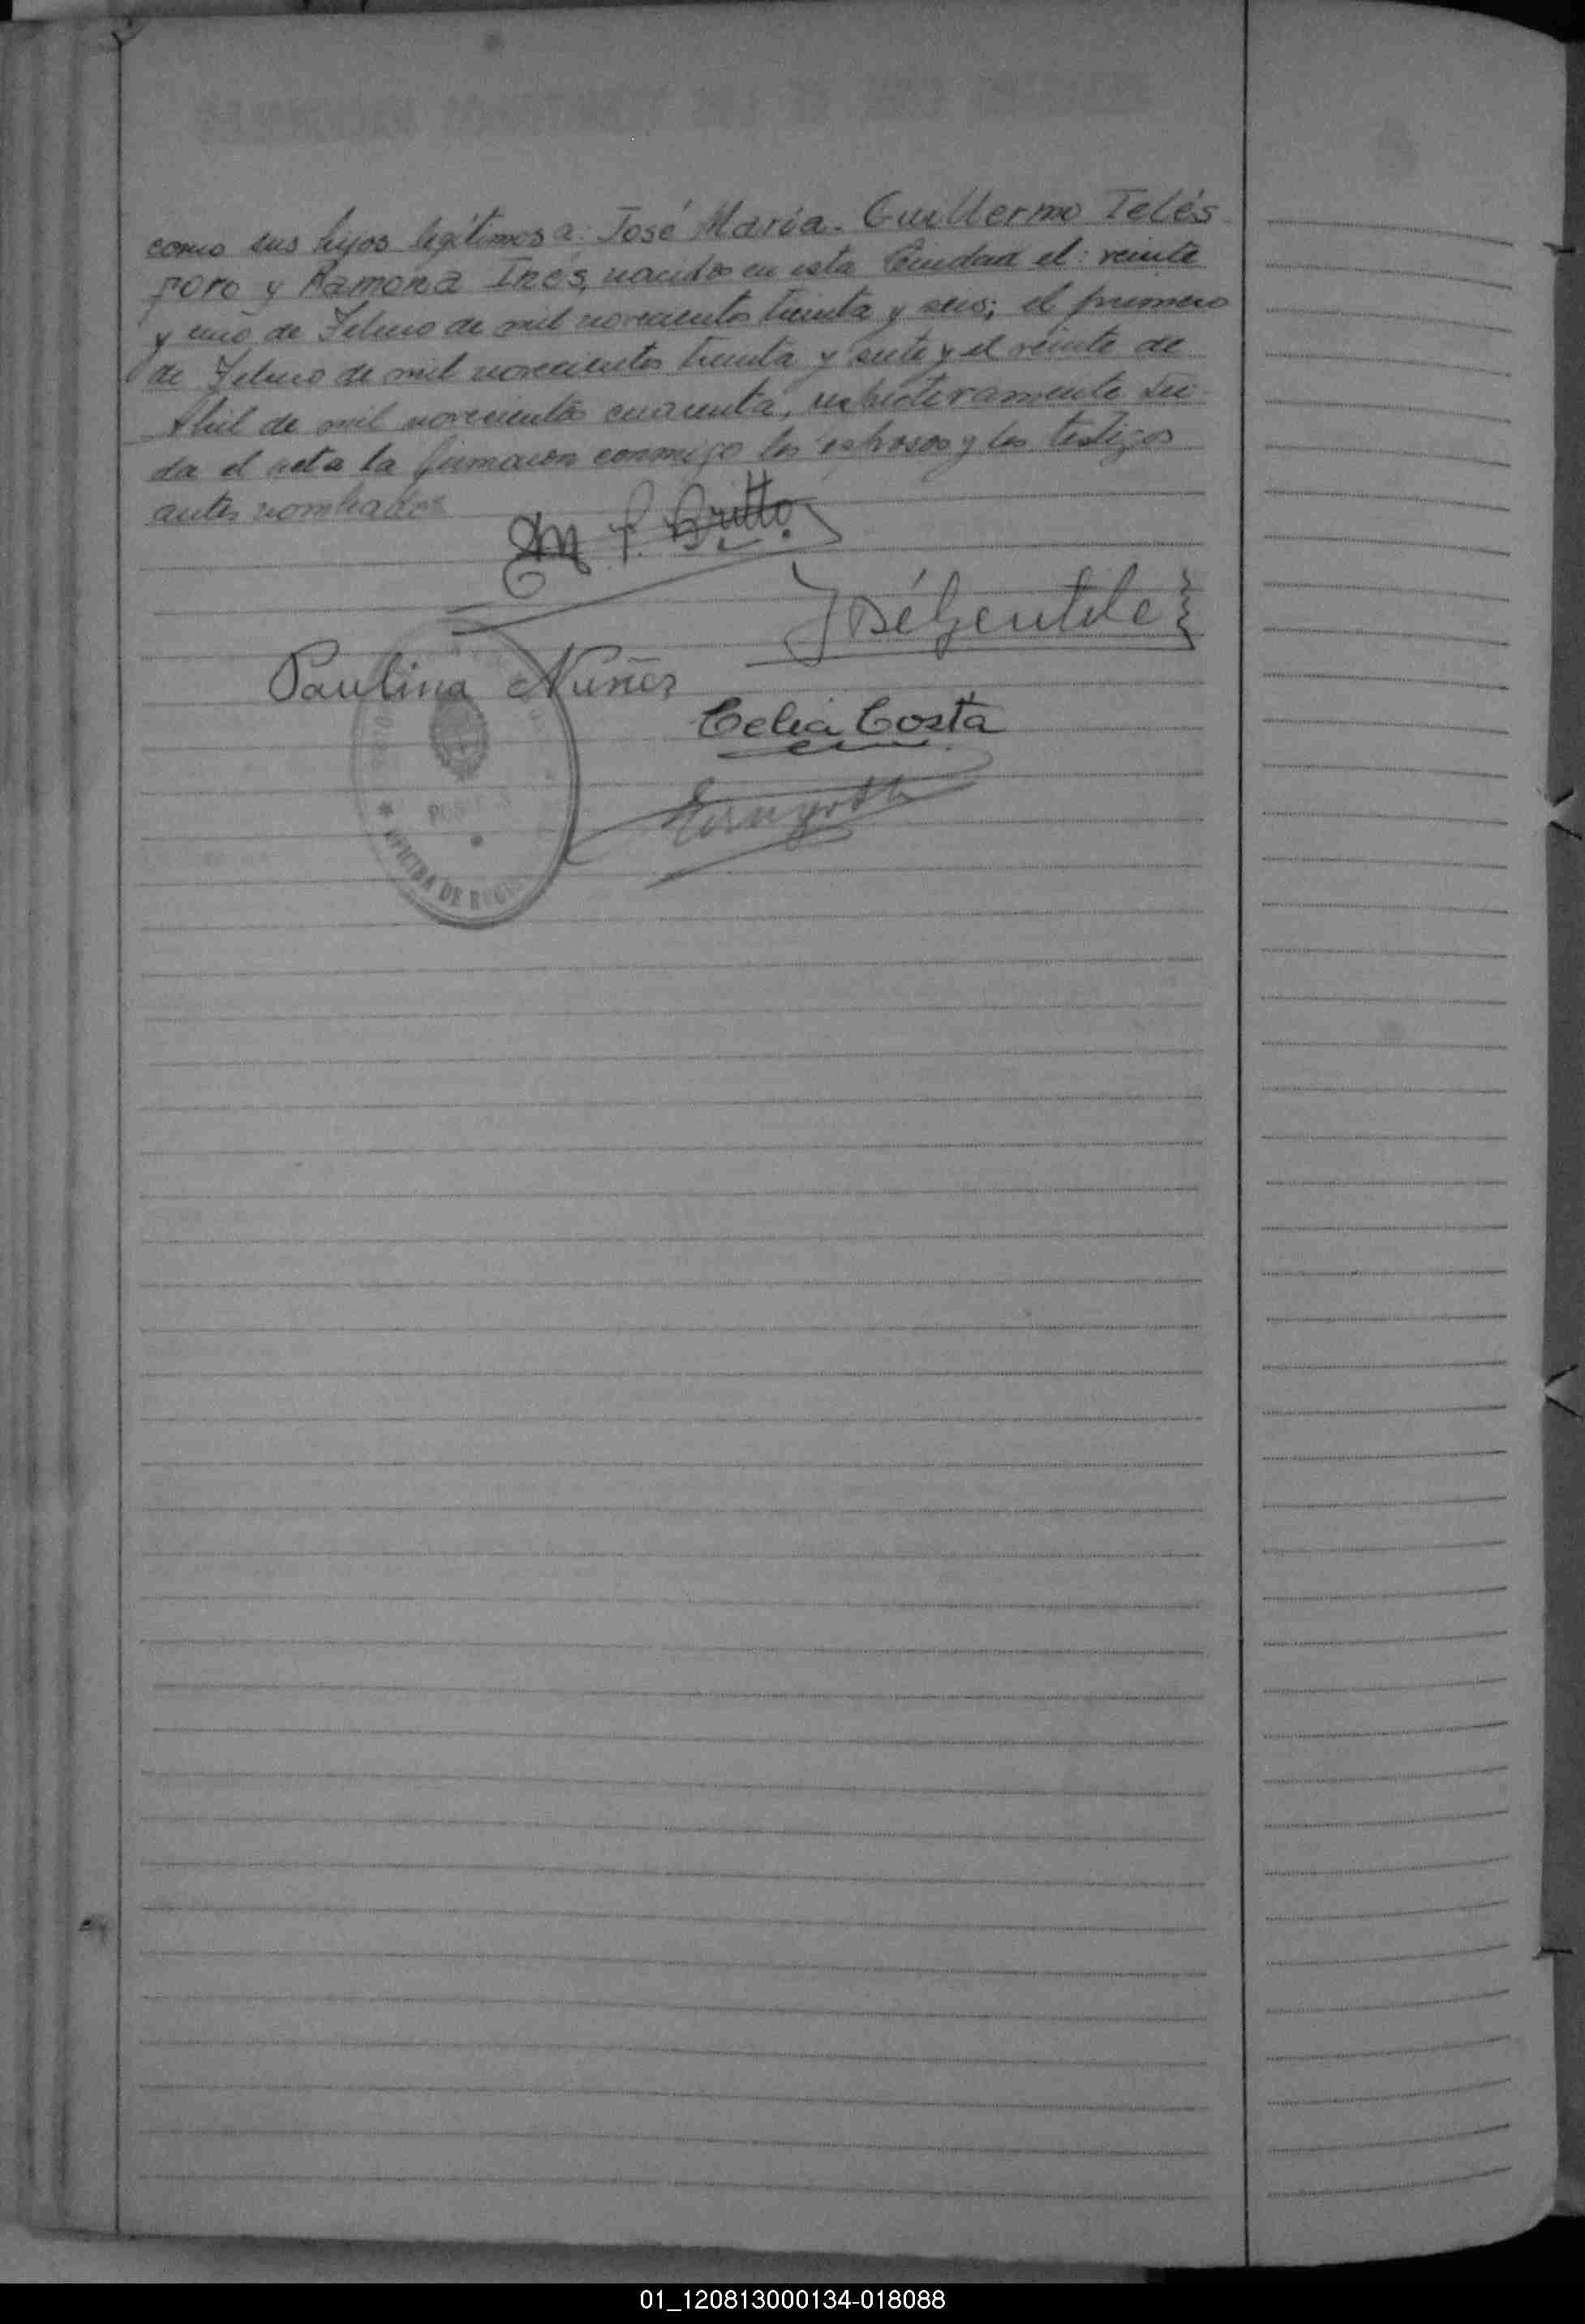 como sus hijos legítimos a: José María. Guillermo Telés
foro y Ramona Inés, nacidos en esta Ciudad el: veinte
y uno de Febrero de mil novecientos treinta y seis; el primero
de Febrero de mil novecientos treinta y siete y el veinte de
Abril de mil novecientos cuarenta, respectivamente Leí-
da el acta la firmaron conmigo los esposos y los testigos
antes nombrados
M. P. Britto
José Gentile
Paulina Nuñez
Celia Costa
OFICINA DE
01_120813000134-018088